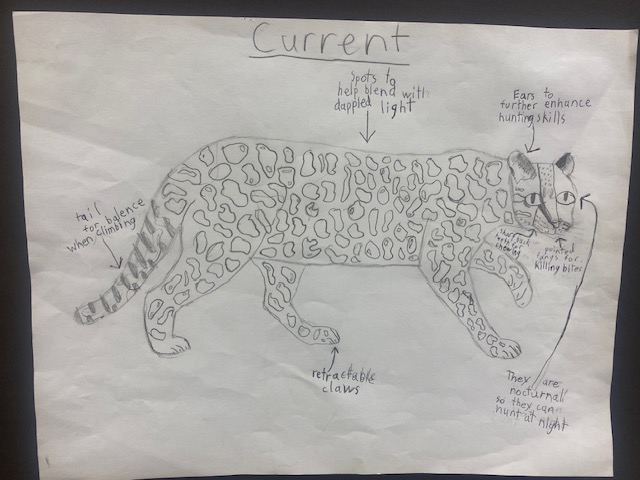 Current
Spots to
help blend with
dappled light
Ears to
further enhance
hunting skills
tail
for balence
when climbing
sharp back
teeth for
chewing
pointed
fangs for
killing bites
retractable
claws
They are
nocturnal
so they can
hunt at night